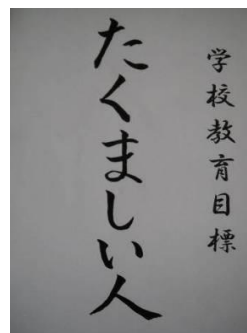 学校教育目標
たくましい人